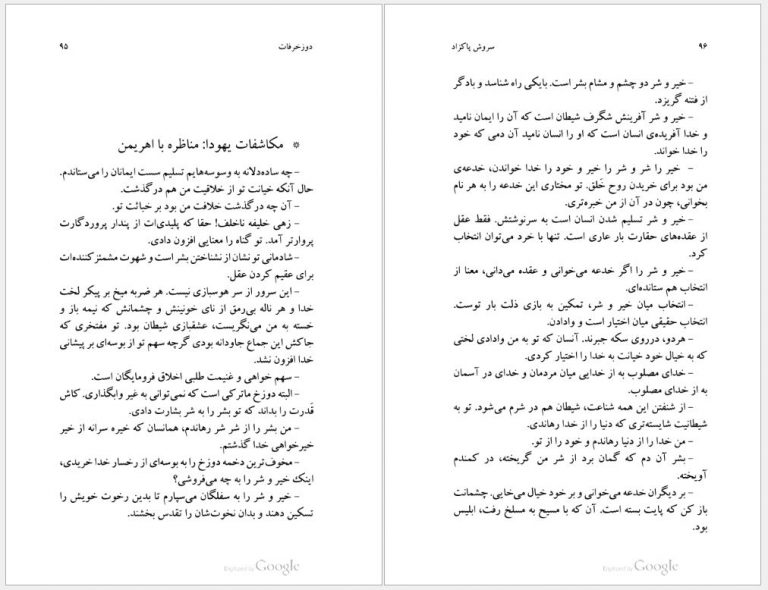 دوزخرفات ۹۵
* مکاشفات یهودا: مناظره با اهریمن
– چه ساده‌دلانه به وسوسه‌هایم تسلیم سست ایمانان را می‌ستاندم.
حال آنکه خیانت تو از خلاقیت من هم درگذشت.
– آن چه درگذشت خلافت من بود بر خبائث تو.
– زهی خلیفه ناخلف! حقا که پلیدی‌ات از پندار پروردگارت
پروارتر آمد. تو گناه را معنایی افزون دادی.
– شادمانی تو نشان از نشناختن بشر است و شهوت مشمئزکننده‌ات
برای عقیم کردن عقل.
– این سرور از سر هوسبازی نیست. هر ضربه میخ بر پیکر لخت
خدا و هر ناله بی‌رمق از نای خونینش و چشمانش که نیمه باز و
خسته به من می‌نگریست، عشقبازی شیطان بود. تو مفتخری که
جاکش این جماع جاودانه بودی گرچه سهم تو از بوسه‌ای بر پیشانی
خدا افزون نشد.
– سهم خواهی و غنیمت طلبی اخلاق فرومایگان است.
– البته دوزخ ماترکی است که نمی‌توانی به غیر وابگذاری. کاش
قَدرت را بداند که تو بشر را به شر بشارت دادی.
– من بشر را از شر شر رهاندم، همانسان که خیره سرانه از خیر
خیرخواهی خدا گذشتم.
– مخوف‌ترین دخمه دوزخ را به بوسه‌ای از رخسار خدا خریدی،
اینک خیر و شر را به چه می‌فروشی؟
– خیر و شر را به سفلگان می‌سپارم تا بدین رخوت خویش را
تسکین دهند و بدان نخوت‌شان را تقدس بخشند.
Digitized by Google
۹۶ سروش پاکزاد
– خیر و شر دو چشم و مشام بشر است. بایکی راه شناسد و بادگر
از فتنه گریزد.
– خیر و شر آفرینش شگرف شیطان است که آن را ایمان نامید
و خدا آفریده‌ی انسان است که او را انسان نامید آن دمی که خود
را خدا خواند.
– خیر را شر و شر را خیر و خود را خدا خواندن، خدعه‌ی
من بود برای خریدن روح خَلق. تو مختاری این خدعه را به هر نام
بخوانی، چون در آن از من خبره‌تری.
– خیر و شر تسلیم شدن انسان است به سرنوشتش. فقط عقل
از عقده‌های حقارت بار عاری است. تنها با خرد می‌توان انتخاب
کرد.
– خیر و شر را اگر خدعه می‌خوانی و عقده می‌دانی، معنا از
انتخاب هم ستانده‌ای.
– انتخاب میان خیر و شر، تمکین به بازی ذلت بار توست.
انتخاب حقیقی میان اختیار است و وادادن.
– هردو، درروی سکه جبرند. آنسان که تو به من وادادی لختی
که به خیال خود خیانت به خدا را اختیار کردی.
– خدای مصلوب به از خدایی میان مردمان و خدای در آسمان
به از خدای مصلوب.
– از شنفتن این همه شناعت، شیطان هم در شرم می‌شود. تو به
شیطانیت شایسته‌تری که دنیا را از خدا رهاندی.
– من خدا را از دنیا رهاندم و خود را از تو.
– بشر آن دم که گمان برد از شر من گریخته، در کمندم
آویخته.
– بر دیگران خدعه می‌خوانی و بر خود خیال می‌خایی. چشمانت
باز کن که پایت بسته است. آن که با مسیح به مسلخ رفت، ابلیس
بود.
Digitized by Google